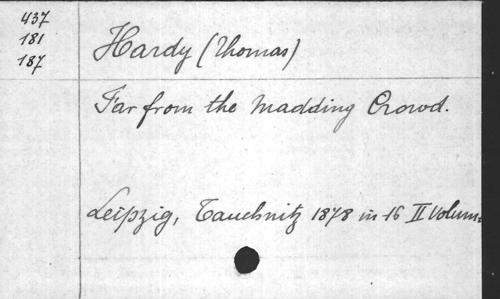 437
181
187
Hardy (Thomas)
Far from the Madding Crowd.
Leipzig, Tauchnitz 1878 in-16 II Volum: